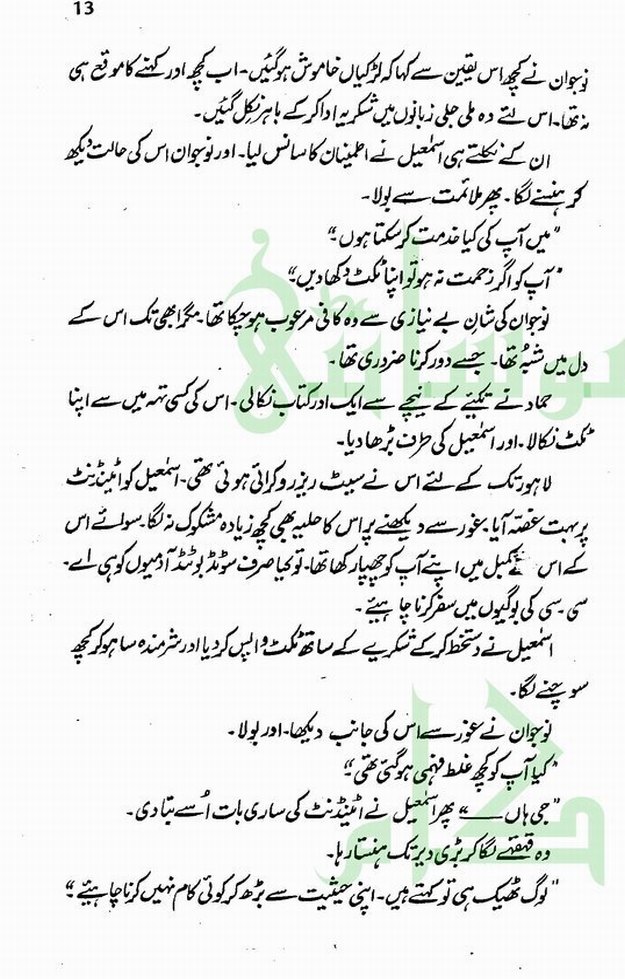 13
نوجوان نے کچھ اس یقین سے کہا کہ لڑکیاں خاموش ہوگئیں۔ اب کچھ اور کہنے کا موقع ہی
نہ تھا۔ اس لئے وہ ملی جلی زبانوں میں شکریہ ادا کر کے باہر نکل گئیں۔
ان کے نکلتے ہی اسمٰعیل نے اطمینان کا سانس لیا۔ اور نوجوان اس کی حالت دیکھ
کر ہنسنے لگا۔ پھر ملائمت سے بولا۔
"میں آپ کی کیا خدمت کر سکتا ہوں۔"
"آپ کو اگر زحمت نہ ہو تو اپنا ٹکٹ دکھا دیں۔"
نوجوان کی شانِ بے نیازی سے وہ کافی مرعوب ہو چکا تھا۔ مگر ابھی تک اس کے
دل میں شبہُ تھا۔ جسے دور کرنا ضروری تھا۔
حماد نے تکیئے کے نیچے سے ایک اور کتاب نکالی۔ اس کی کسی تہہ میں سے اپنا
ٹکٹ نکالا۔ اور اسمٰعیل کی طرف بڑھا دیا۔
لاہور تک کے لئے اس نے سیٹ ریزرو کرائی ہوئی تھی۔ اسمٰعیل کو اٹینڈنٹ
پر بہت غصّہ آیا۔ غور سے دیکھنے پر اس کا حلیہ بھی کچھ زیادہ مشکوک نہ لگا۔ سوائے اس
کے اس نے کمبل میں اپنے آپ کو چھپا رکھا تھا۔ تو کیا صرف سوٹڈ بوٹڈ آدمیوں کو ہی اے۔
سی۔ سی کی بوگیوں میں سفر کرنا چاہیئے۔
اسمٰعیل نے دستخط کر کے شکریے کے ساتھ ٹکٹ واپس کر دیا اور شرمندہ سا ہو کر کچھ
سوچنے لگا۔
نوجوان نے غور سے اس کی جانب دیکھا۔ اور بولا۔
"کیا آپ کو کچھ غلط فہمی ہوگئی تھی۔"
"جی ہاں ——" پھر اسمٰعیل نے اٹینڈنٹ کی ساری بات اُسے بتا دی۔
وہ قہقہے لگا کر بڑی دیر تک ہنستا رہا۔
"لوگ ٹھیک ہی تو کہتے ہیں۔ اپنی حیثیت سے بڑھ کر کوئی کام نہیں کرنا چاہیئے۔"